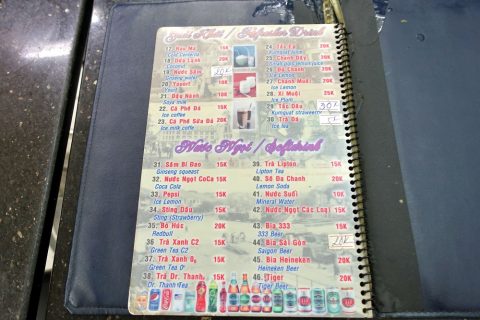 Giải Khát / Refresher Drink
17. Rau Má 15K
Cold Centenlla
18. Dừa Lạnh 20K
Coconut
19. Nước Sâm 20K
Ginseng water
20. Yaourt
Yourt
21. Đậu Nành
Soya milk
22. Cà Phê Đá 15K
Ice coffee
23. Cà Phê Sữa Đá 20K
Ice milk coffe
24. Tắc Ép 20K
Kumquat juice
25. Chanh Dây 20K
26. Đá Chanh
Ice Lemon
27. Chanh Muối
Ice Lemon
28. Xí Muội 25K
Ice Plum
29. Tắc Dâu 20K
Kumquat straweerry
30. Trà Đá 5K
Ice tea
Nước Ngọt / Softdrink
31. Sâm Bí Đao 15K
Ginseng squoeat
32. Nước Ngọt CoCa 15K
Coca Cola
33. Pepsi 15K
Ice Lemon
34. Sting Dâu 15K
Sting (Strawberry)
35. Bò Húc 20K
Redbull
36. Trà Xanh C2 15K
Green Tea C2
37. Trà Xanh 0 15K
Green Tea O
38. Trà Dr. Thanh 15K
Dr. Thanh Tea
39. Trà Lipton 15K
Lipton Tea
40. Sô Đa Chanh 20K
Lemon Soda
41. Nước Suối 10K
Mineral Water
42. Nước Ngọt Các Loại 15K
43. Bia 333 15K
333 Beer
44. Bia Sài Gòn 20K
Saigon Beer
45. Bia Heineken 20K
Heineken Beer
46. Tiger 20K
Tiger Beer